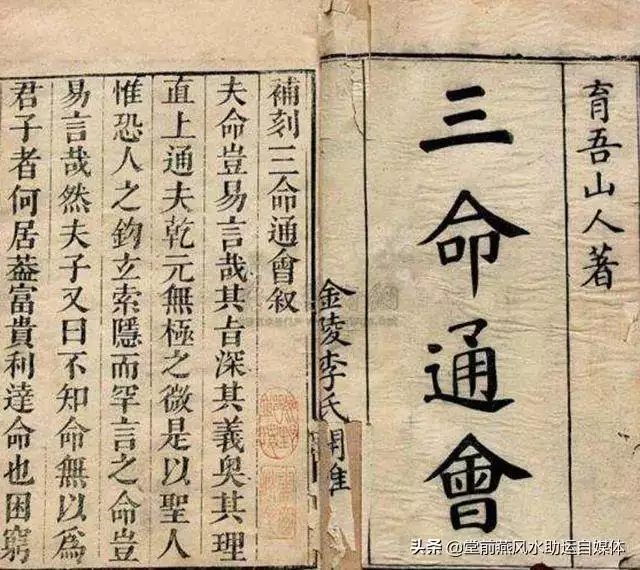 育吾山人著
三命通會
金陵李氏
補刻三命通會叙
夫命豈易言哉其旨深其義奧其理
直上通夫乾元無極之微是以聖人
惟恐人之鈎玄索隱而罕言之命豈
易言哉然夫子又曰不知命無以為
君子者何居葢富貴利達命也困窮
头条 @堂前燕风水助运自媒体